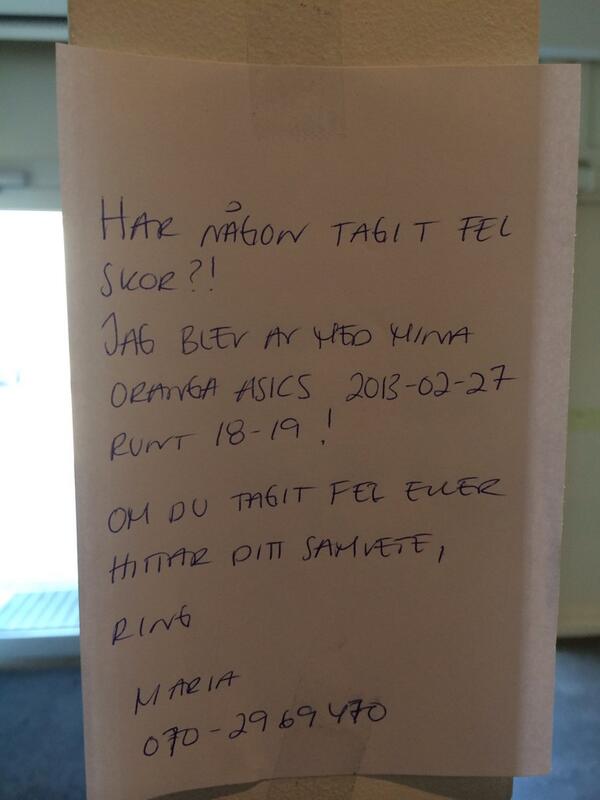 HAR NÅGON TAGIT FEL
SKOR?!
JAG BLEV AV MED MINA
ORANGA ASICS 2013-02-27
RUNT 18-19 !
OM DU TAGIT FEL ELLER
HITTAR DITT SAMVETE,
RING
MARIA
070-29 69 470